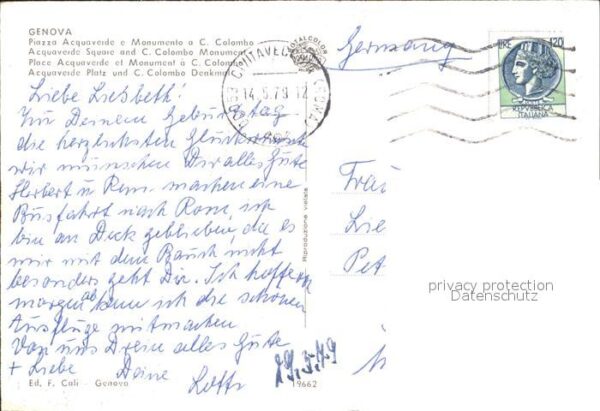 GENOVA
Piazza Acquaverde e Monumento a C. Colombo
Acquaverde Square and C. Colombo Monument
Place Acquaverde et Monument à C. Colombo
Acquaverde Platz und C. Colombo Denkmal
Liebe Liesbeth!
Zu Deinem Geburtstag
die herzlichsten Glückwünsche
wir wünschen Dir alles Gute
Herbert u machen eine
Busfahrt nach Rom, ich
bin an Deck geblieben, da es
mir mit dem Bauch nicht
besonders geht. Ich hoffe
morgen ab kann ich die schönen
Ausflüge mitmachen
Von uns Dreien alles Gute
+ Liebe Deine
29.5.79
Ed. F. Cali - Genova
9662
Riproduzione vietata
CIVITAVECCHIA
14 5.79 12
Germany
LIRE 120
REPVBBLICA
ITALIANA
Frau
Lie
Pet
privacy protection
Datenschutz